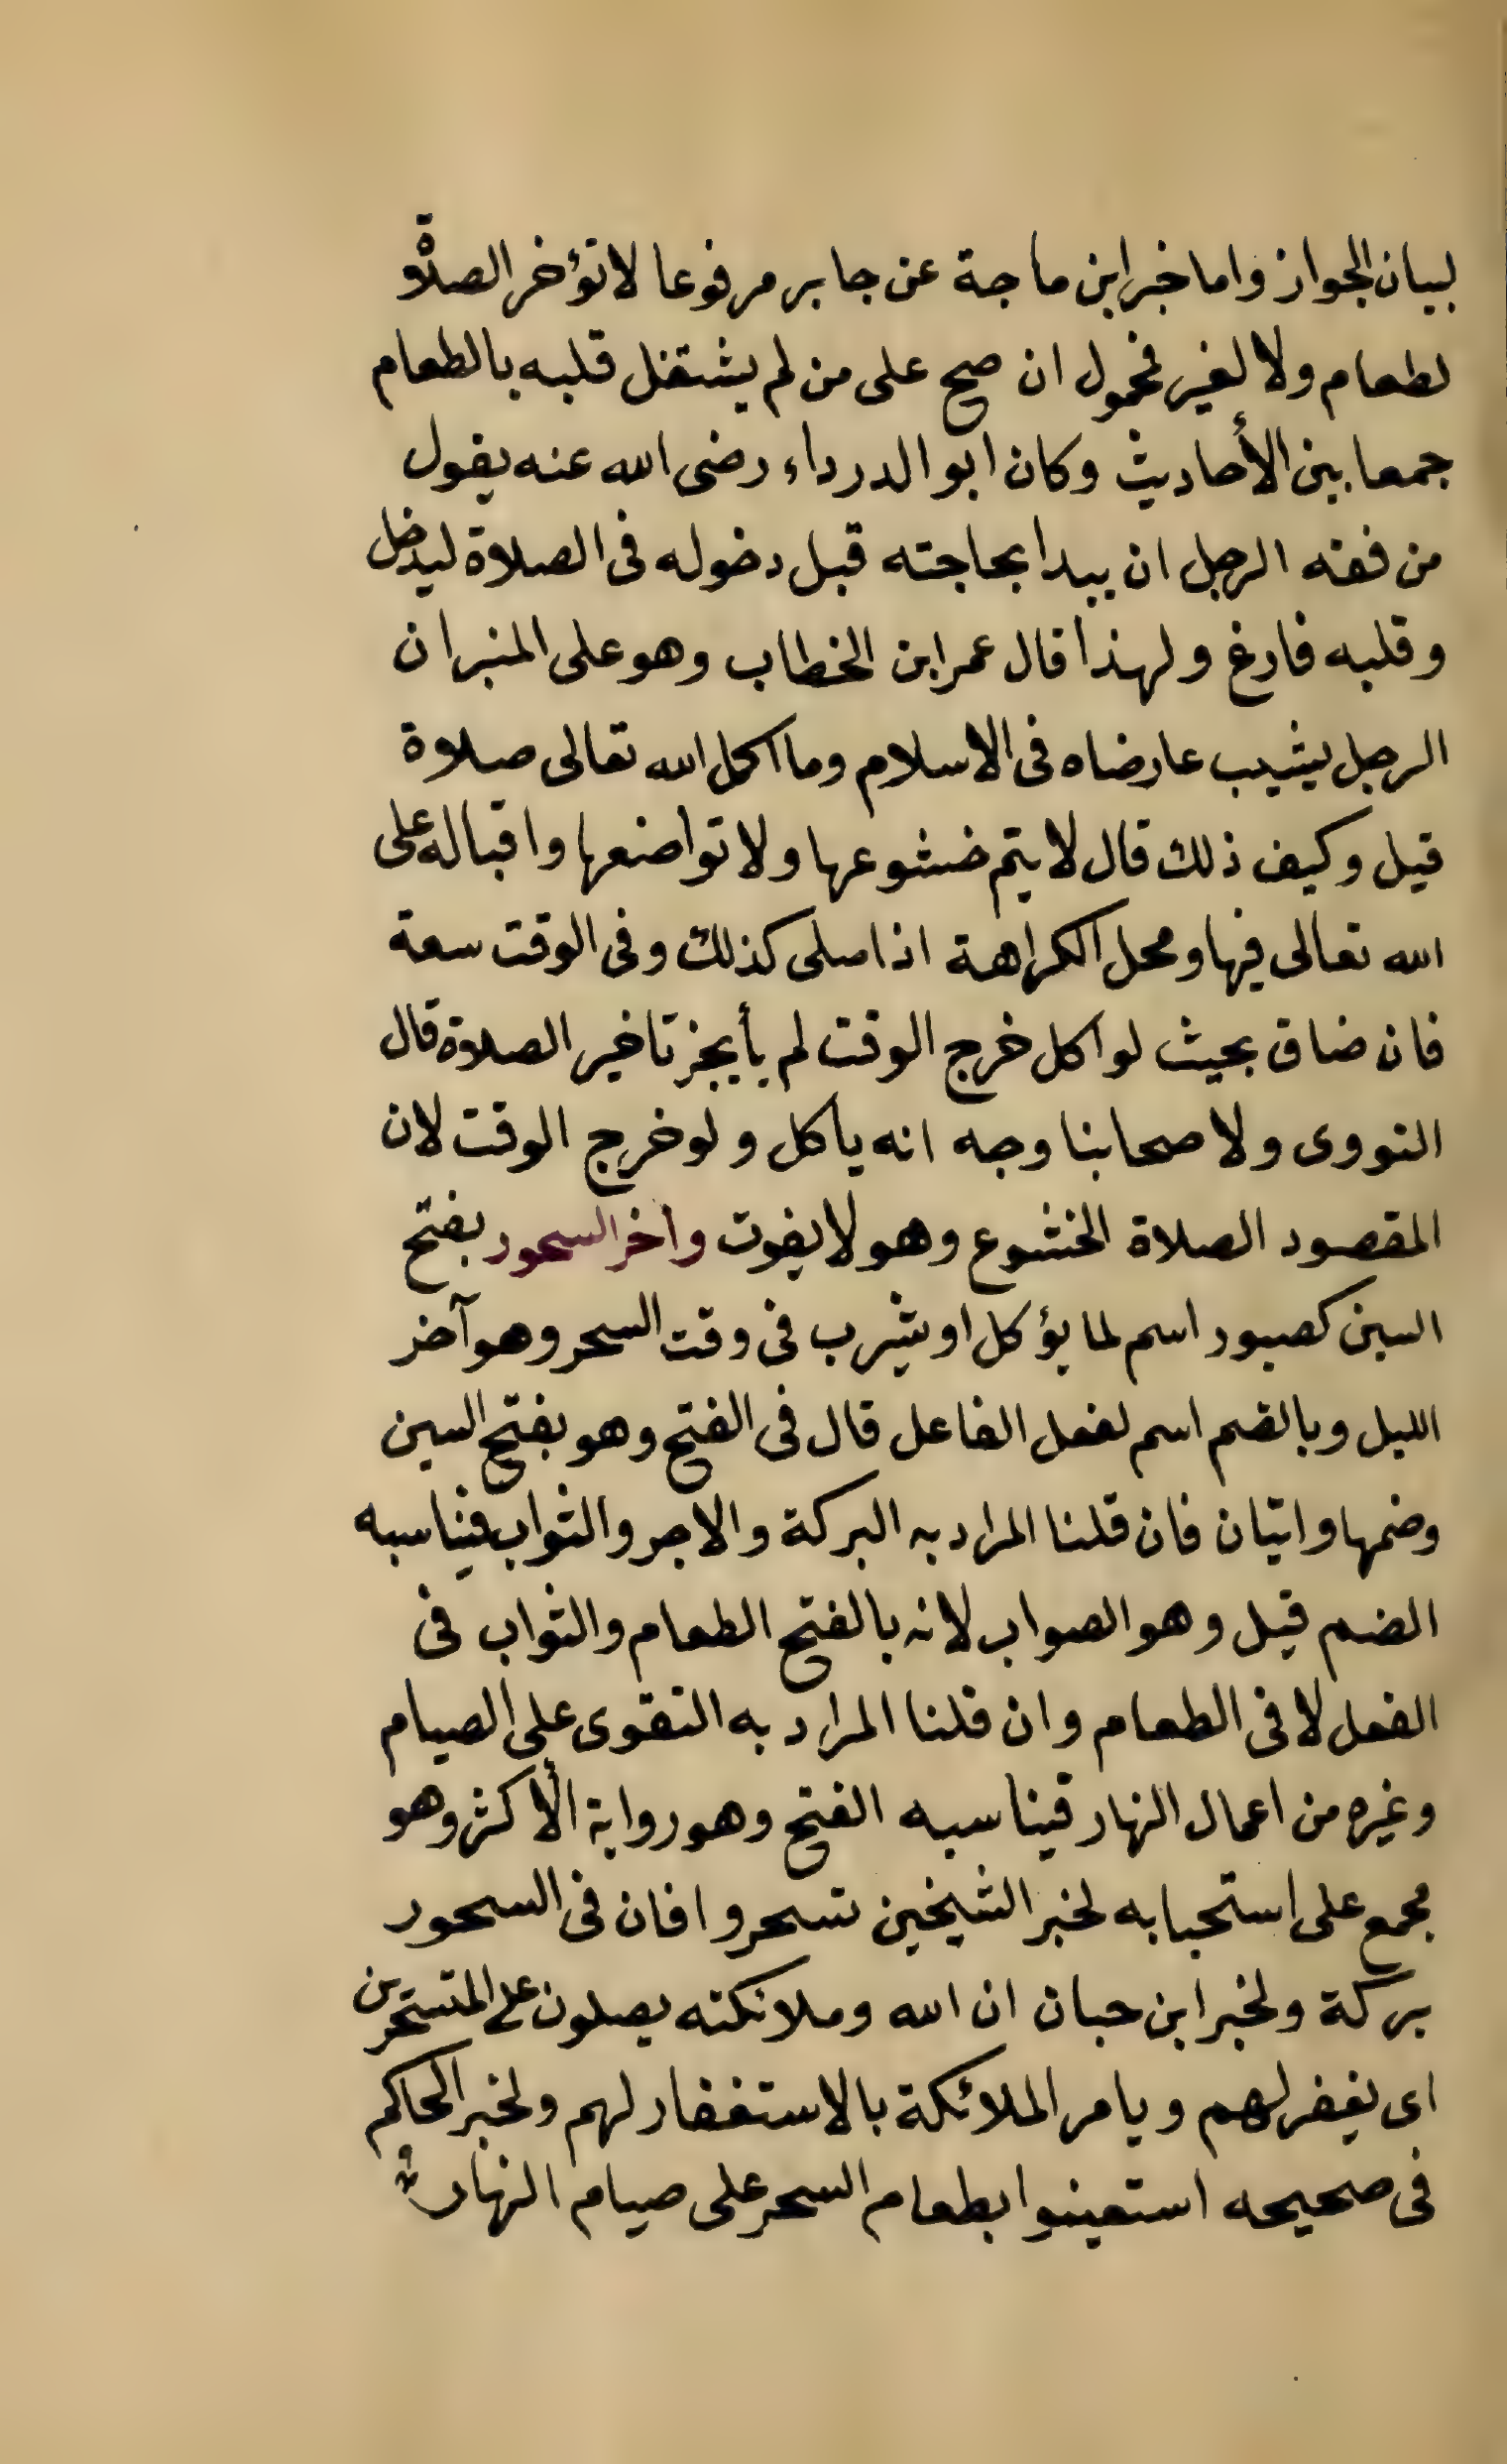 لبيان الجواز واما خبر ابن ماجة عن جابر مرفوعا لا تؤخر الصلوٰة
لطعام ولا لغير فمحمول ان صح على من لم يشتغل قلبه بالطعام
جمعا بين الأحاديث وكان ابو الدرداء رضى الله عنه يقول
من فقه الرجل ان يبدا بحاجته قبل دخوله فى الصلاة ليدخل
وقلبه فارغ ولهذا قال عمر ابن الخطاب وهو على المنبر ان
الرجل يشيب عارضاه فى الاسلام وما اكمل الله تعالى صلاة
قيل وكيف ذلك قال لا يتم خشوعها ولا تواضعها واقباله على
الله تعالى فيها ومحل الكراهة اذا صلى كذلك وفى الوقت سعة
فان ضاق بحيث لو اكل خرج الوقت لم يجز تاخير الصلاة قال
النووى ولاصحابنا وجه انه ياكل ولو خرج الوقت لان
المقصود الصلاة الخشوع وهو لا يفوت واخر السحور بفتح
السين كصبور اسم لما يؤكل او يشرب فى وقت السحر وهو آخر
الليل وبالضم اسم لفعل الفاعل قال فى الفتح وهو بفتح السين
وضمها واتيان فان قلنا المراد به البركة والاجر والثواب فيناسبه
الضم قيل وهو الصواب لانه بالفتح الطعام والثواب فى
الفعل لا فى الطعام وان قلنا المراد به التقوى على الصيام
وغيره من اعمال النهار فيناسبه الفتح وهو رواية ألاكثر وهو
مجمع على استحبابه لخبر الشيخين تسحروا فان فى السحور
بركة ولخبر ابن حبان ان الله وملائكته يصلون على المتسحرين
اى يغفر لهم ويامر الملائكة بالاستغفار لهم ولخبر الحاكم
فى صحيحه استعينوا بطعام السحر على صيام النهار